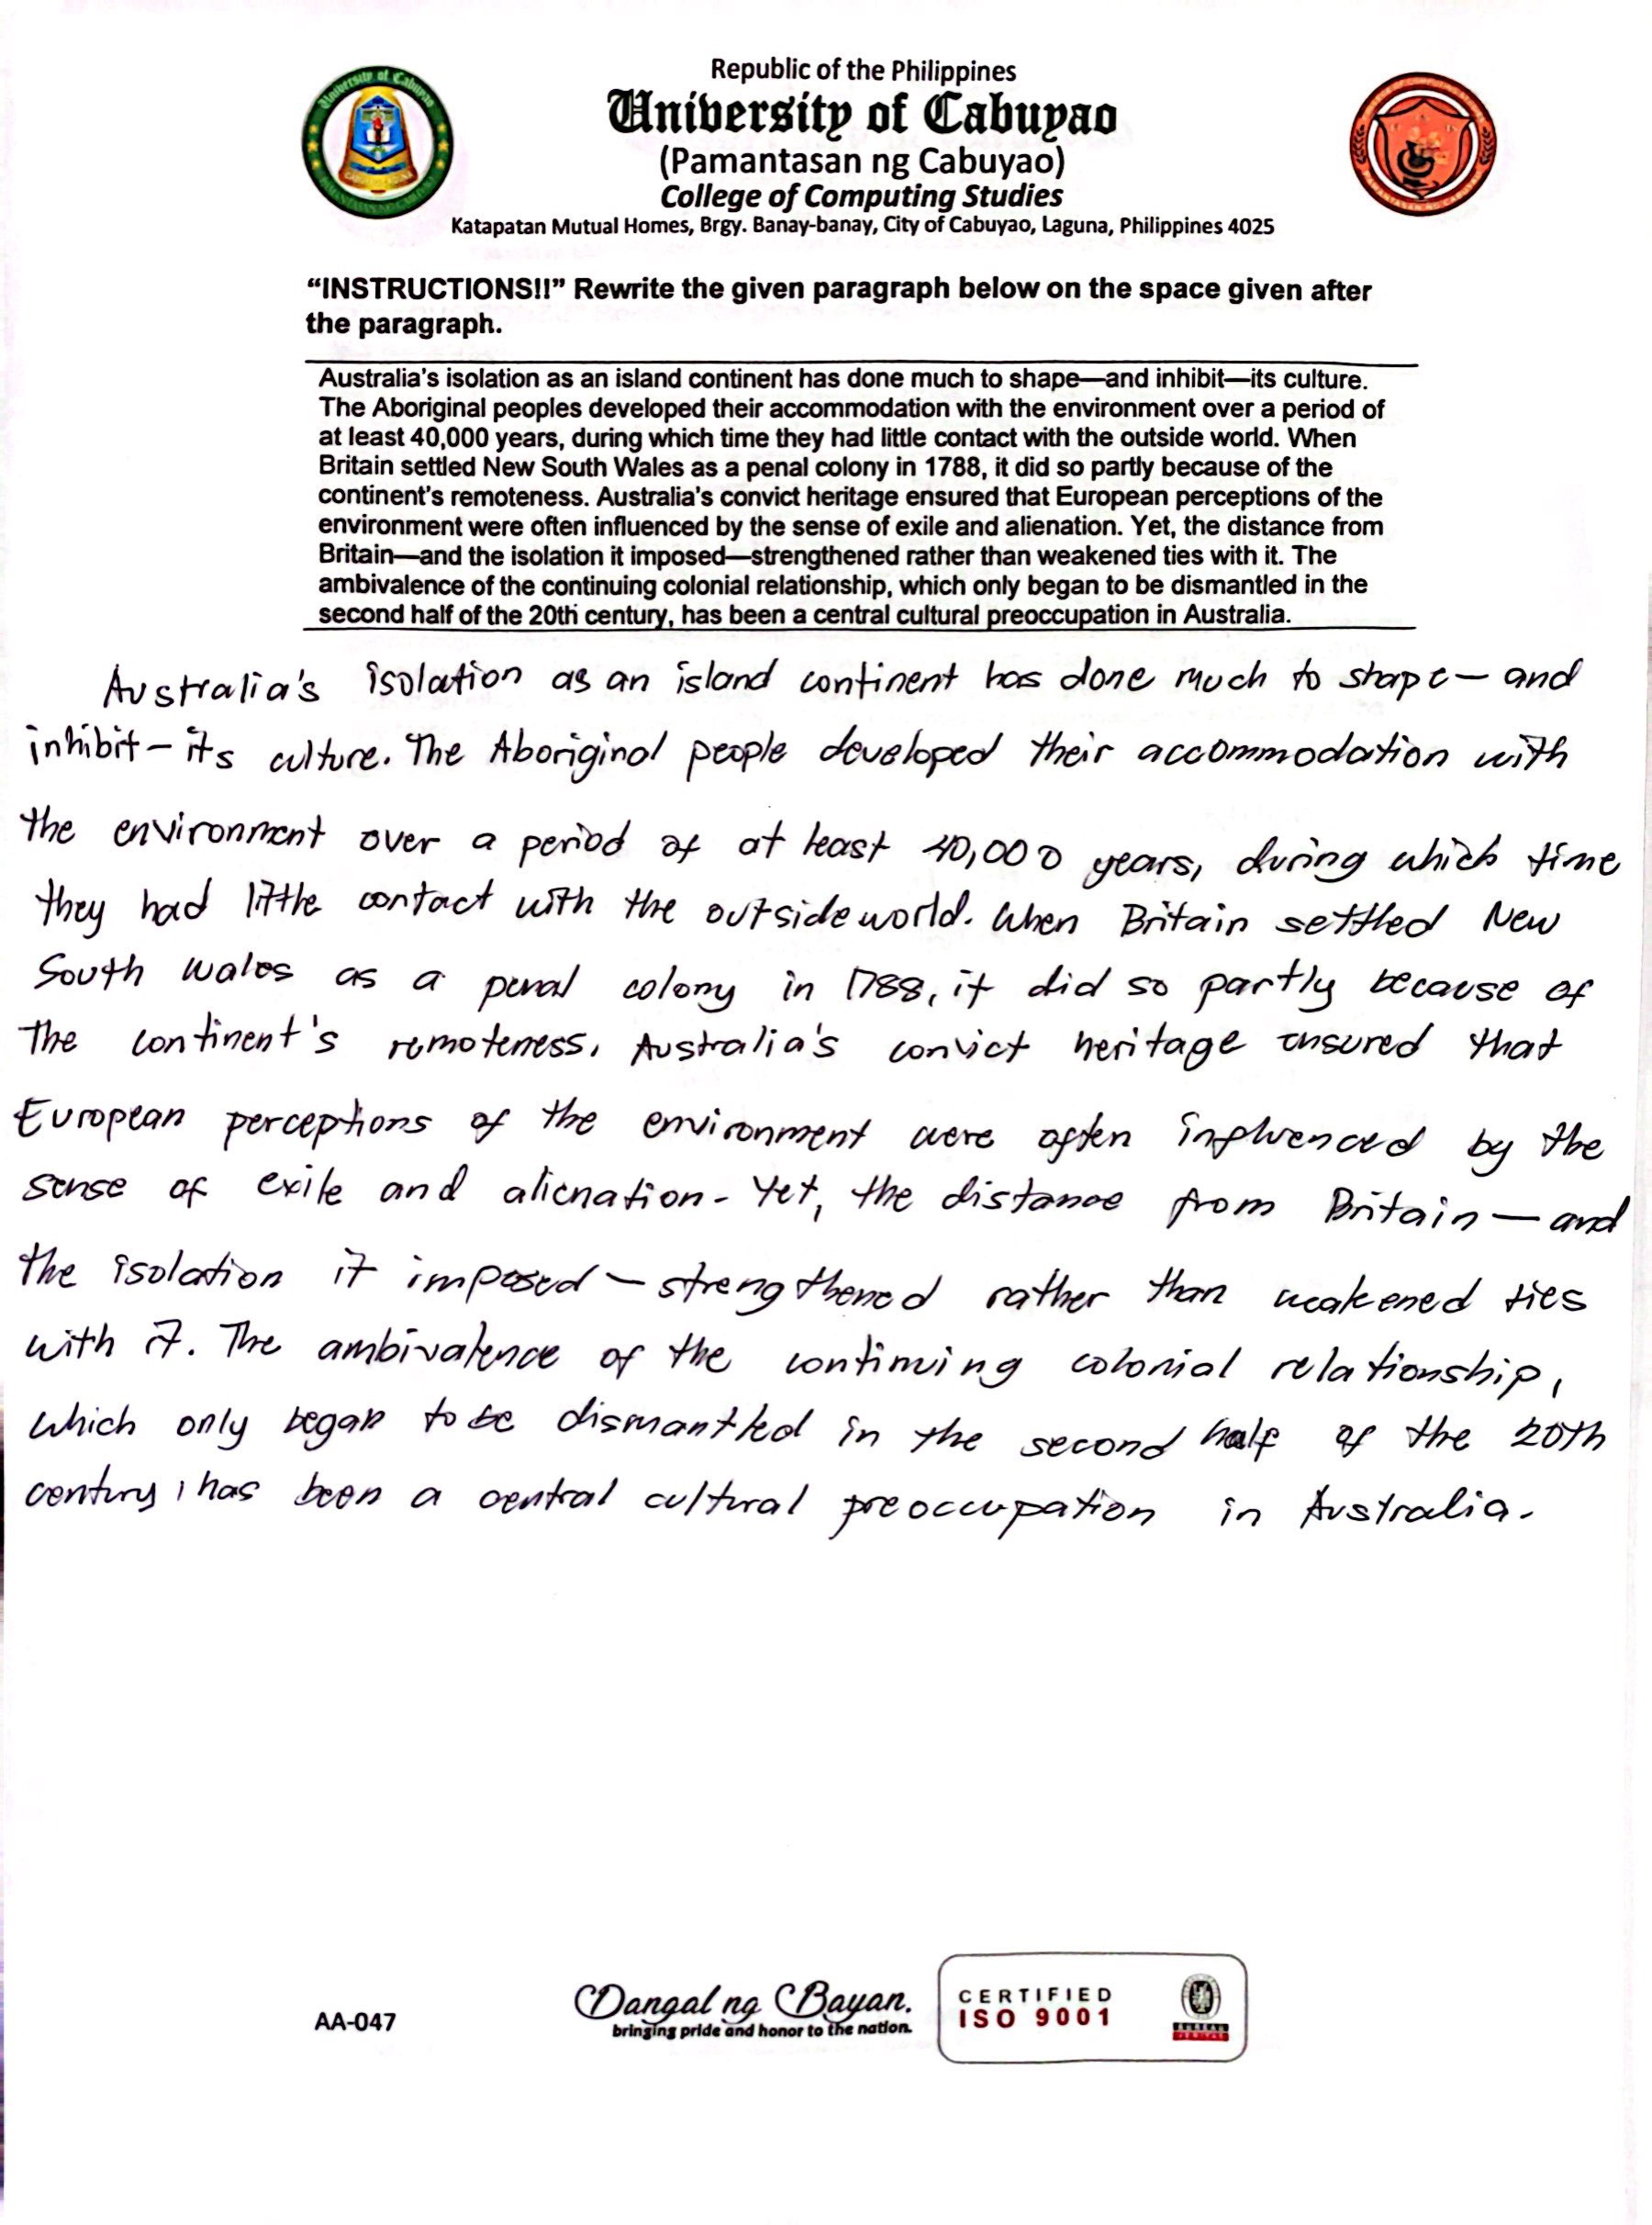 Republic of the Philippines
University of Cabuyao
(Pamantasan ng Cabuyao)
College of Computing Studies
Katapatan Mutual Homes, Brgy. Banay-banay, City of Cabuyao, Laguna, Philippines 4025
“INSTRUCTIONS!!” Rewrite the given paragraph below on the space given after
the paragraph.
Australia’s isolation as an island continent has done much to shape—and inhibit—its culture.
The Aboriginal peoples developed their accommodation with the environment over a period of
at least 40,000 years, during which time they had little contact with the outside world. When
Britain settled New South Wales as a penal colony in 1788, it did so partly because of the
continent’s remoteness. Australia’s convict heritage ensured that European perceptions of the
environment were often influenced by the sense of exile and alienation. Yet, the distance from
Britain—and the isolation it imposed—strengthened rather than weakened ties with it. The
ambivalence of the continuing colonial relationship, which only began to be dismantled in the
second half of the 20th century, has been a central cultural preoccupation in Australia.
Australia's isolation as an island continent has done much to shape — and
inhibit — its culture. The Aboriginal people developed their accommodation with
the environment over a period of at least 40,000 years, during which time
they had little contact with the outside world. When Britain settled New
South Wales as a penal colony in 1788, it did so partly because of
the continent's remoteness. Australia's convict heritage ensured that
European perceptions of the environment were often influenced by the
sense of exile and alienation. Yet, the distance from Britain — and
the isolation it imposed — strengthened rather than weakened ties
with it. The ambivalence of the continuing colonial relationship,
which only began to be dismantled in the second half of the 20th
century, has been a central cultural preoccupation in Australia.
AA-047
Dangal ng Bayan.
bringing pride and honor to the nation.
CERTIFIED
ISO 9001